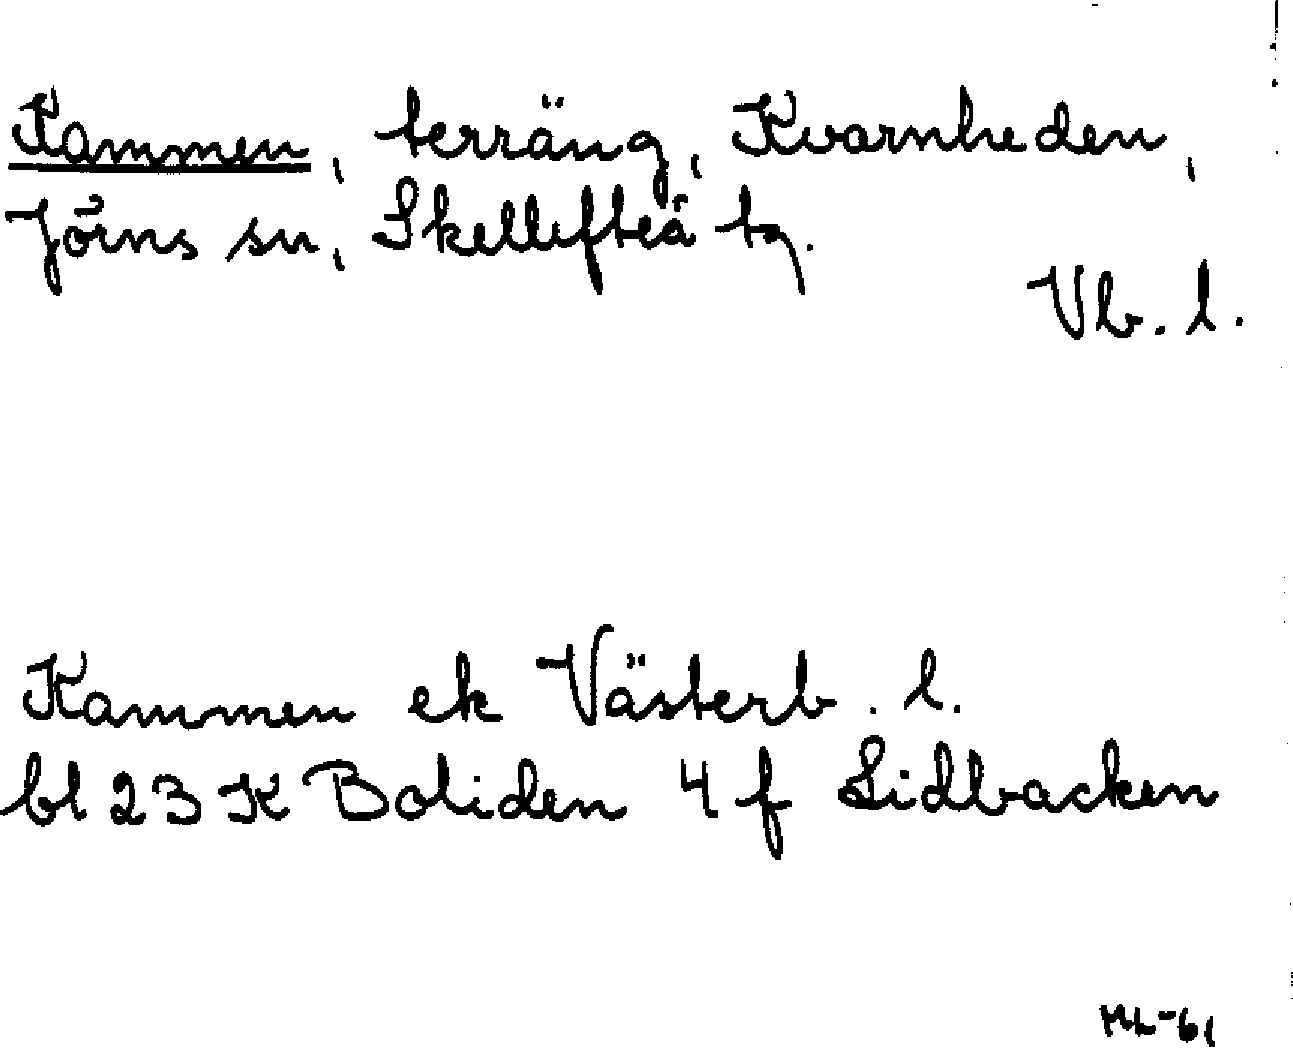 Kammen, terräng, Kvarnheden,
Jörns sn, Skellefteå tg.
Vb. l.
Kammen ek Västerb. l.
bl 23 K Boliden 4 f Lidbacken
ML-61